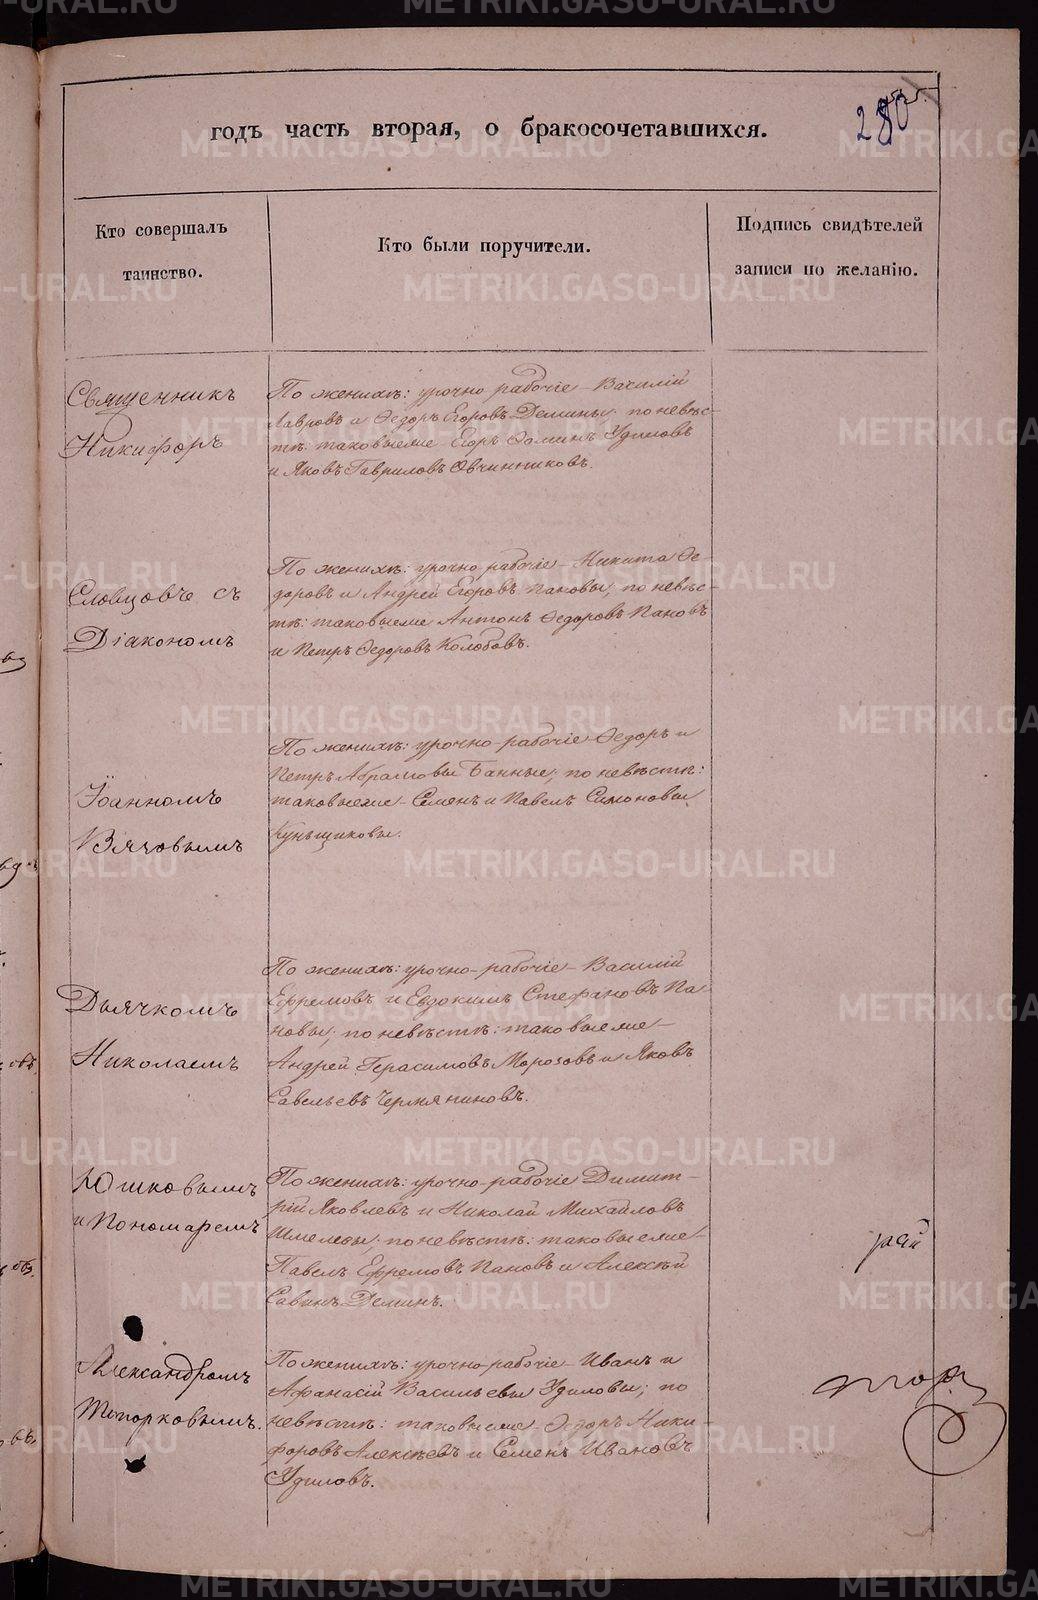 годъ часть вторая, о бракосочетавшихся.
280
Кто совершалъ
таинство.
Кто были поручители.
Подпись свидѣтелей
записи по желанію.
Священникъ
Никифоръ
Словцовъ съ
Діакономъ
Іоанномъ
Вяловымъ
Дьячкомъ
Николаемъ
Юшковымъ
и Пономаремъ
Александромъ
Топорковымъ.
По женихѣ: урочно рабочіе – Василій
Лавровъ и Ѳедоръ Егоровъ Демины; по невѣс-
тѣ: таковыеже Егоръ Ѳоминъ Удиловъ
и Яковъ Гавриловъ Овчинниковъ.
По женихѣ: урочно-рабочіе – Никита Ѳе-
доровъ и Андрей Егоровъ Пановы; по невѣс-
тѣ: таковыеже Антонъ Ѳедоровъ Пановъ
и Петръ Ѳедоровъ Колобовъ.
По женихѣ: урочно-рабочіе Ѳедоръ и
Петръ Абрамовы Банные; по невѣстѣ:
таковыеже – Семенъ и Павелъ Симоновы
Кунщиковы.
По женихѣ: урочно-рабочіе – Василій
Ефремовъ и Евдокимъ Стефановъ Па-
новы; по невѣстѣ: таковыеже –
Андрей Герасимовъ Морозовъ и Яковъ
Савельевъ Чермяниновъ.
По женихѣ: урочно-рабочіе Димит-
рій Яковлевъ и Николай Михайловъ
Шмелевы; по невѣстѣ: таковыеже –
Павелъ Ефремовъ Пановъ и Алексѣй
Савинъ Деминъ.
По женихѣ: урочно-рабочіе – Иванъ и
Афанасій Васильевы Удиловы; по
невѣстѣ: таковыеже – Ѳедоръ Ники-
форовъ Алексѣевъ и Семенъ Ивановъ
Удиловъ.
METRIKI.GASO-URAL.RU